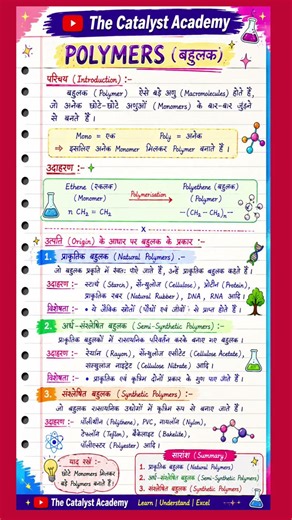 The Catalyst Academy
POLYMERS (बहुलक)
परिचय (Introduction) :-
बहुलक (Polymer) ऐसे बड़े अणु (Macromolecules) होते हैं,
जो अनेक छोटे-छोटे अणुओं (Monomers) के बार-बार जुड़ने
से बनते हैं।
Mono = एक Poly = अनेक
⇒ इसलिए अनेक Monomer मिलकर Polymer बनाते हैं।
उदाहरण :-
Ethene (एकलक) Polymerisation Polyethene (बहुलक)
(Monomer) (Polymer)
n CH₂ = CH₂ -(CH₂-CH₂)ₙ-
x
उत्पत्ति (Origin) के आधार पर बहुलक के प्रकार :-
1. प्राकृतिक बहुलक (Natural Polymers) :-
जो बहुलक प्रकृति में स्वतः पाए जाते हैं, उन्हें प्राकृतिक बहुलक कहते हैं।
उदाहरण :- स्टार्च (Starch), सेल्यूलोज (Cellulose), प्रोटीन (Protein),
प्राकृतिक रबर (Natural Rubber), DNA, RNA आदि।
विशेषता :- ये जैविक स्रोतों (पौधों एवं जीवों) से प्राप्त होते हैं।
2. अर्ध-संश्लेषित बहुलक (Semi-Synthetic Polymers) :-
प्राकृतिक बहुलकों में रासायनिक परिवर्तन करके बनाए गए बहुलक।
उदाहरण :- रेयॉन (Rayon), सेल्यूलोज एसीटेट (Cellulose Acetate),
सेल्यूलोज नाइट्रेट (Cellulose Nitrate) आदि।
विशेषता :- प्राकृतिक एवं कृत्रिम दोनों प्रकार के गुण पाए जाते हैं।
3. संश्लेषित बहुलक (Synthetic Polymers) :-
जो बहुलक रासायनिक उद्योगों में कृत्रिम रूप से बनाए जाते हैं।
उदाहरण :- पॉलीथीन (Polythene), PVC, नायलॉन (Nylon),
टेफ्लॉन (Teflon), बैकेलाइट (Bakelite),
पॉलिएस्टर (Polyester) आदि।
याद रखें :-
छोटे Monomers मिलकर
बड़े Polymers बनाते हैं।
सारांश (Summary)
1. प्राकृतिक बहुलक (Natural Polymers)
2. अर्ध-संश्लेषित बहुलक (Semi-Synthetic Polymers)
3. संश्लेषित बहुलक (Synthetic Polymers)
The Catalyst Academy Learn | Understand | Excel